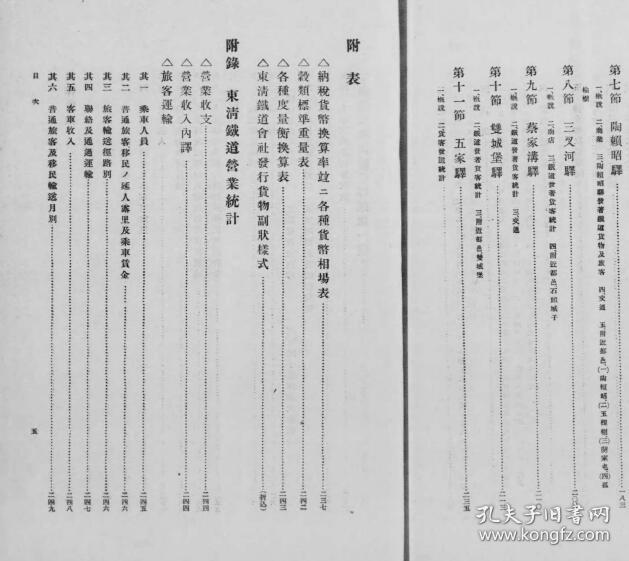 第七節 陶賴昭驛……一八三
一、概說 二、商業 三、陶賴昭驛發著鐵道貨物及旅客 四、交通 五、附近都邑、(一)陶賴昭(二)五棵樹(三)
第八節 三叉河驛
一、概說 二、商店 三、鐵道發著貨客統計 四、附近都邑石頭城子
第九節 蔡家溝驛
一、概說 二、鐵道發著貨客統計 三、交通
第十節 雙城堡驛
一、概說 二、鐵道發著貨客統計 三、附近都邑雙城堡
第十一節 五家驛……二三五
一、概說 二、貨客發送統計
附表
△納稅貨幣換算率竝ニ各種貨幣相場表……二三七
△穀類標準重量表……二四二
△各種度量衡換算表……二四三
△東淸鐵道會社發行貨物副狀樣式……(折込)
附錄 東淸鐵道營業統計
△營業收支……二四四
△營業收入內譯……二四四
△旅客運輸
其一 乘車人員……二四五
其二 普通旅客移民ノ延人露里及乘車賃金……二四六
其三 旅客輸送徑路別……二四六
其四 聯絡及通過運輸……二四七
其五 客車收入……二四八
其六 普通旅客及移民輸送月別……二四九
目次
五
孔夫子旧书网